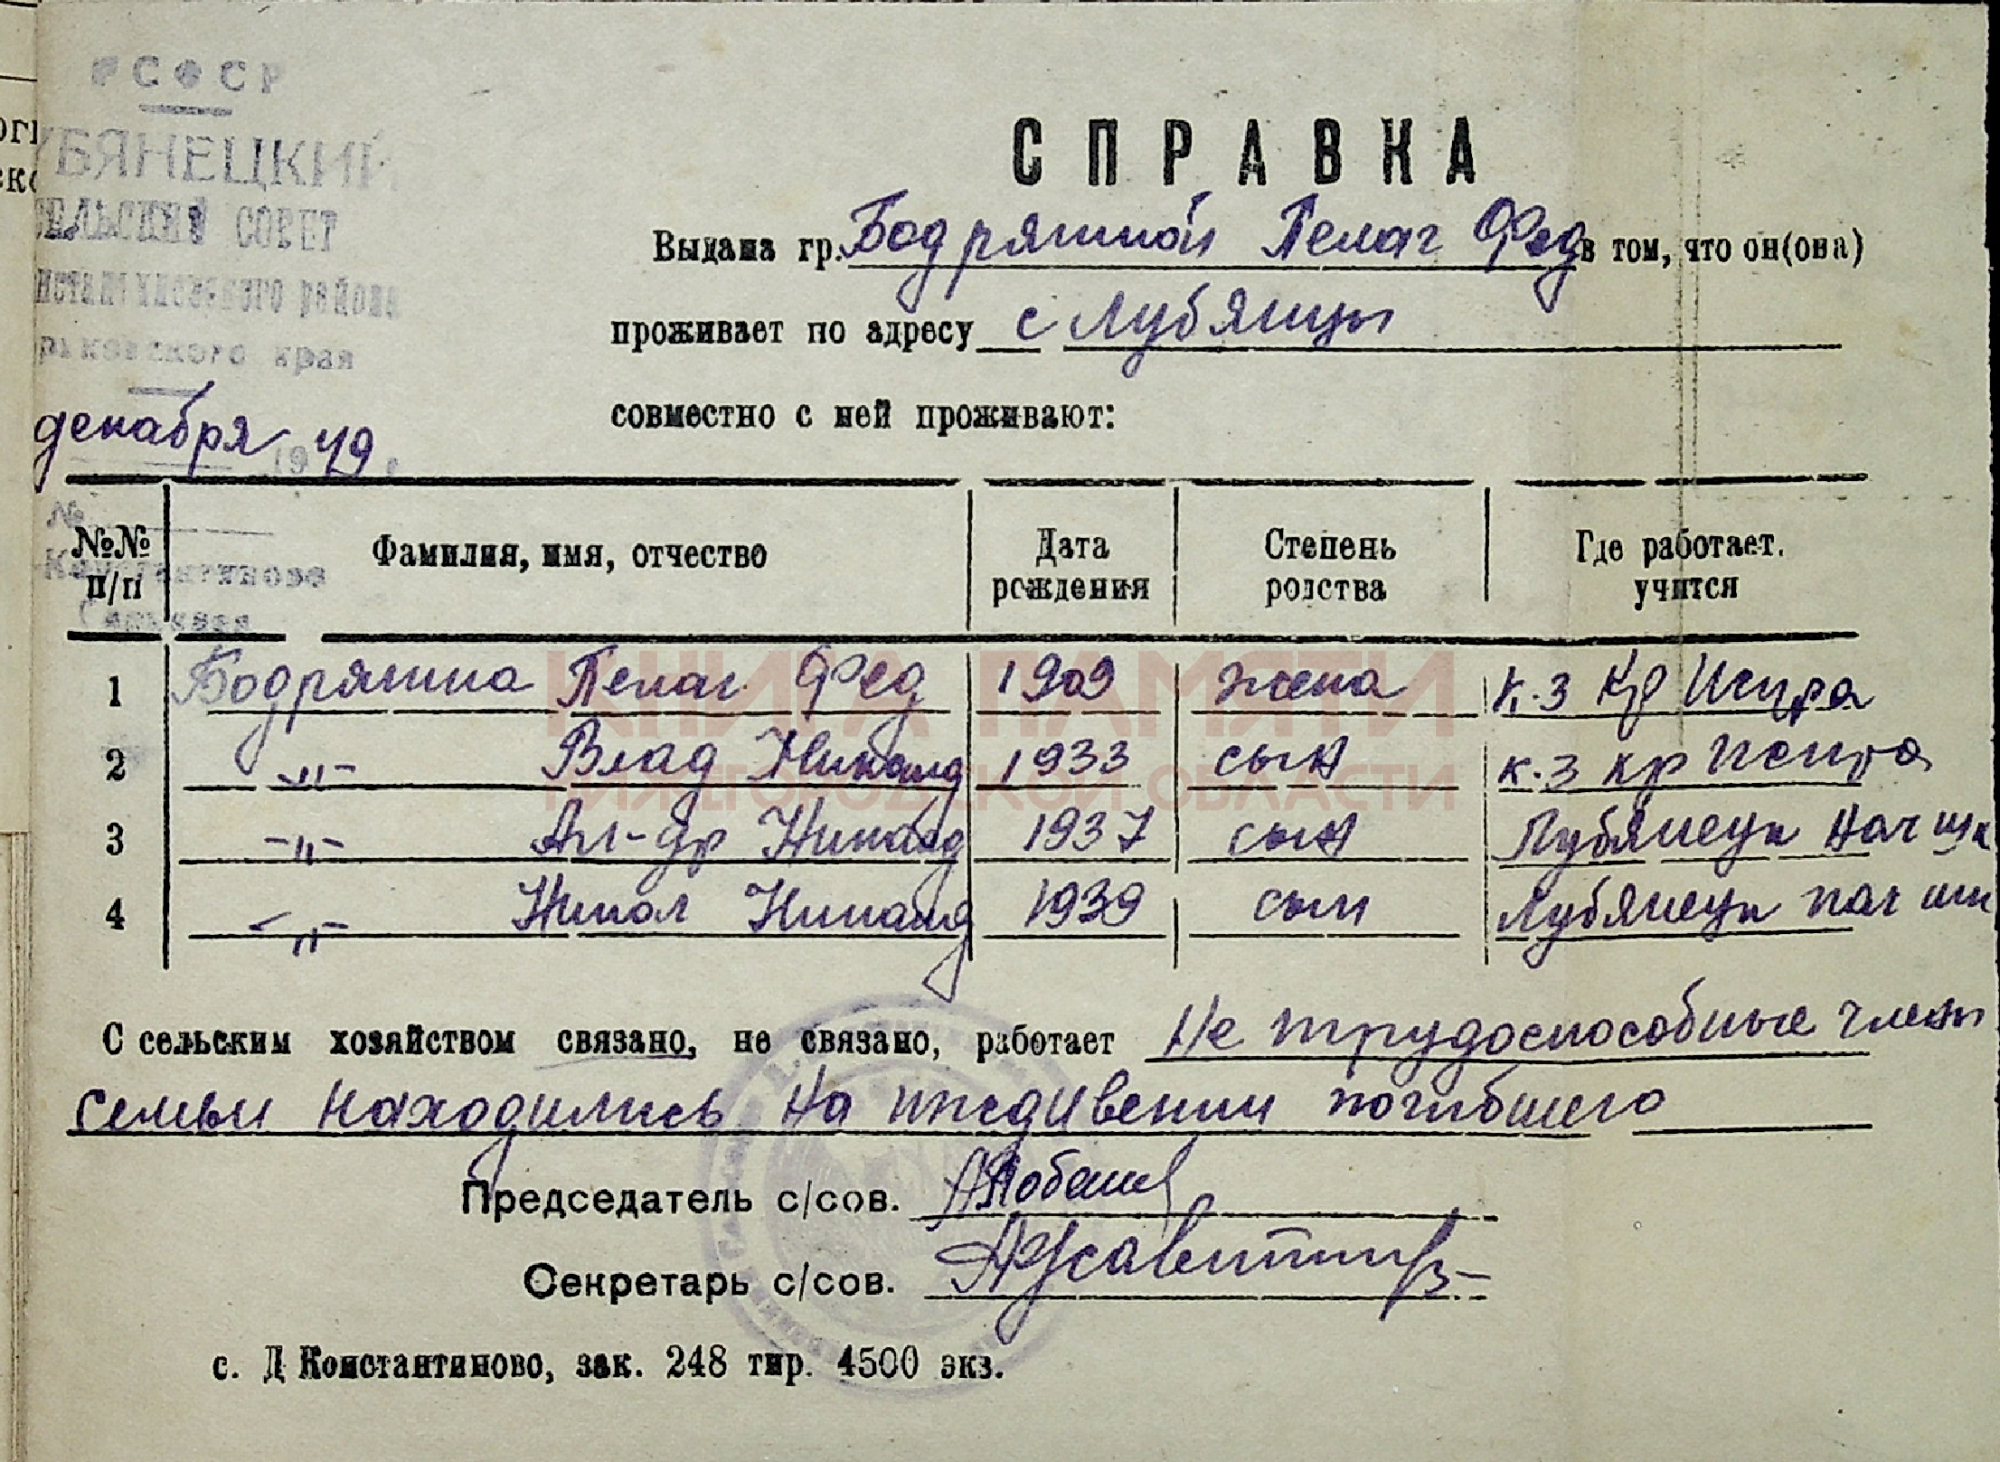 РСФСР
УБЯНЕЦКИЙ
СЕЛЬСКИЙ СОВЕТ
района
края
декабря 1949 г.
№
СПРАВКА
Выдана гр. Бодряшной Пелаг Фед в том, что он(она)
проживает по адресу с Лубянцы
совместно с ней проживают:
№№ п/п Фамилия, имя, отчество Дата рождения Степень родства Где работает. учится
1 Бодряшна Пелаг Фед 1909 жена к-з Кр Искра
2 -"- Влад Никанд 1933 сын к-з кр Искра
3 -"- Ал-др Никанд 1937 сын Лубянецк нач шк
4 -"- Никол Никанд 1939 сын Лубянецк нач шк
КНИГА ПАМЯТИ
НИЖЕГОРОДСКОЙ ОБЛАСТИ
С сельским хозяйством связано, не связано, работает Не трудоспособные члены
семьи находились на иждивении погибшего
Председатель с/сов.
Секретарь с/сов.
с. Д Константиново, зак. 248 тир. 4500 экз.